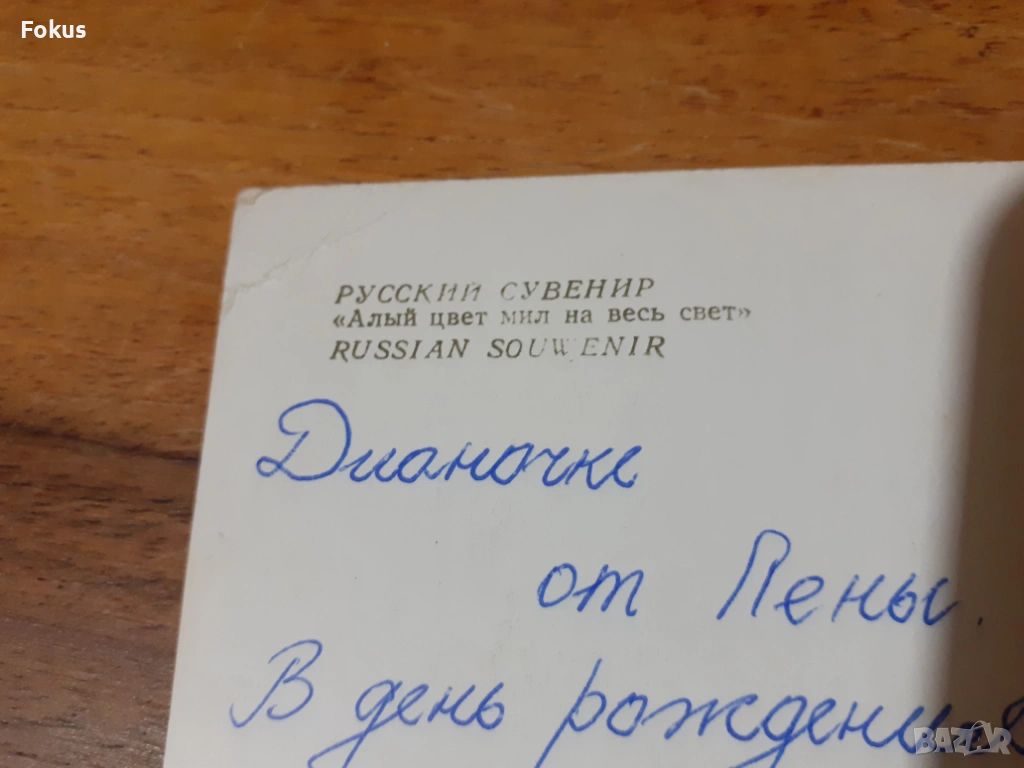 Fokus
РУССКИЙ СУВЕНИР
«Алый цвет мил на весь свет»
RUSSIAN SOUWENIR
Дианочке
от Лены.
В день рождения
BAZAR